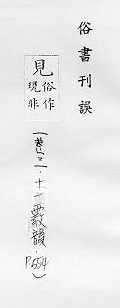 俗書刊誤
見俗作現非
(卷三·十一霰韻·P554)